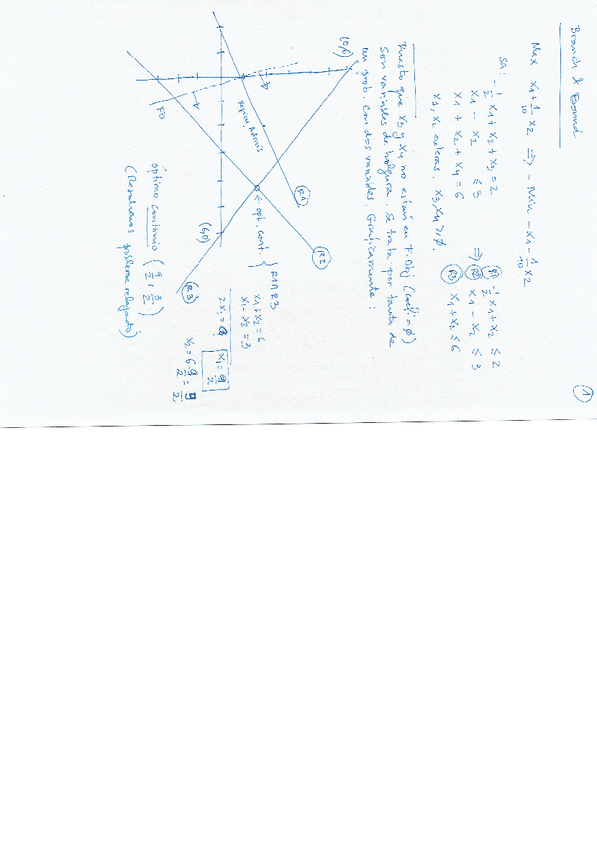 ①
Branch & Bound.
Max x1 + 1/10 x2 ⇒ - Min - x1 - 1/10 x2
sa: -1/2 x1 + x2 + x3 = 2 (R1) -1/2 x1 + x2 ≤ 2
x1 - x2 ≤ 3 ⇒ (R2) x1 - x2 ≤ 3
x1 + x2 + x4 = 6 (R3) x1 + x2 ≤ 6
x1, x2 enteras. x3, x4 ≥ 0.
Puesto que x3 y x4 no están en F. Obj (coefi = 0)
Son variables de holgura. Se trata por tanto de
un prob. con dos variables. Graficamente:
(0,6)
R1
R2
Region Admis
FO
← opt. cont. } R2 ∩ R3
(6,0)
R3
x1 + x2 = 6
x1 - x2 = 3
2x1 = 9 x1 = 9/2
x2 = 6 - 9/2 = 3/2
óptimo continuo (9/2, 3/2)
(Resolvemos problema relajado)